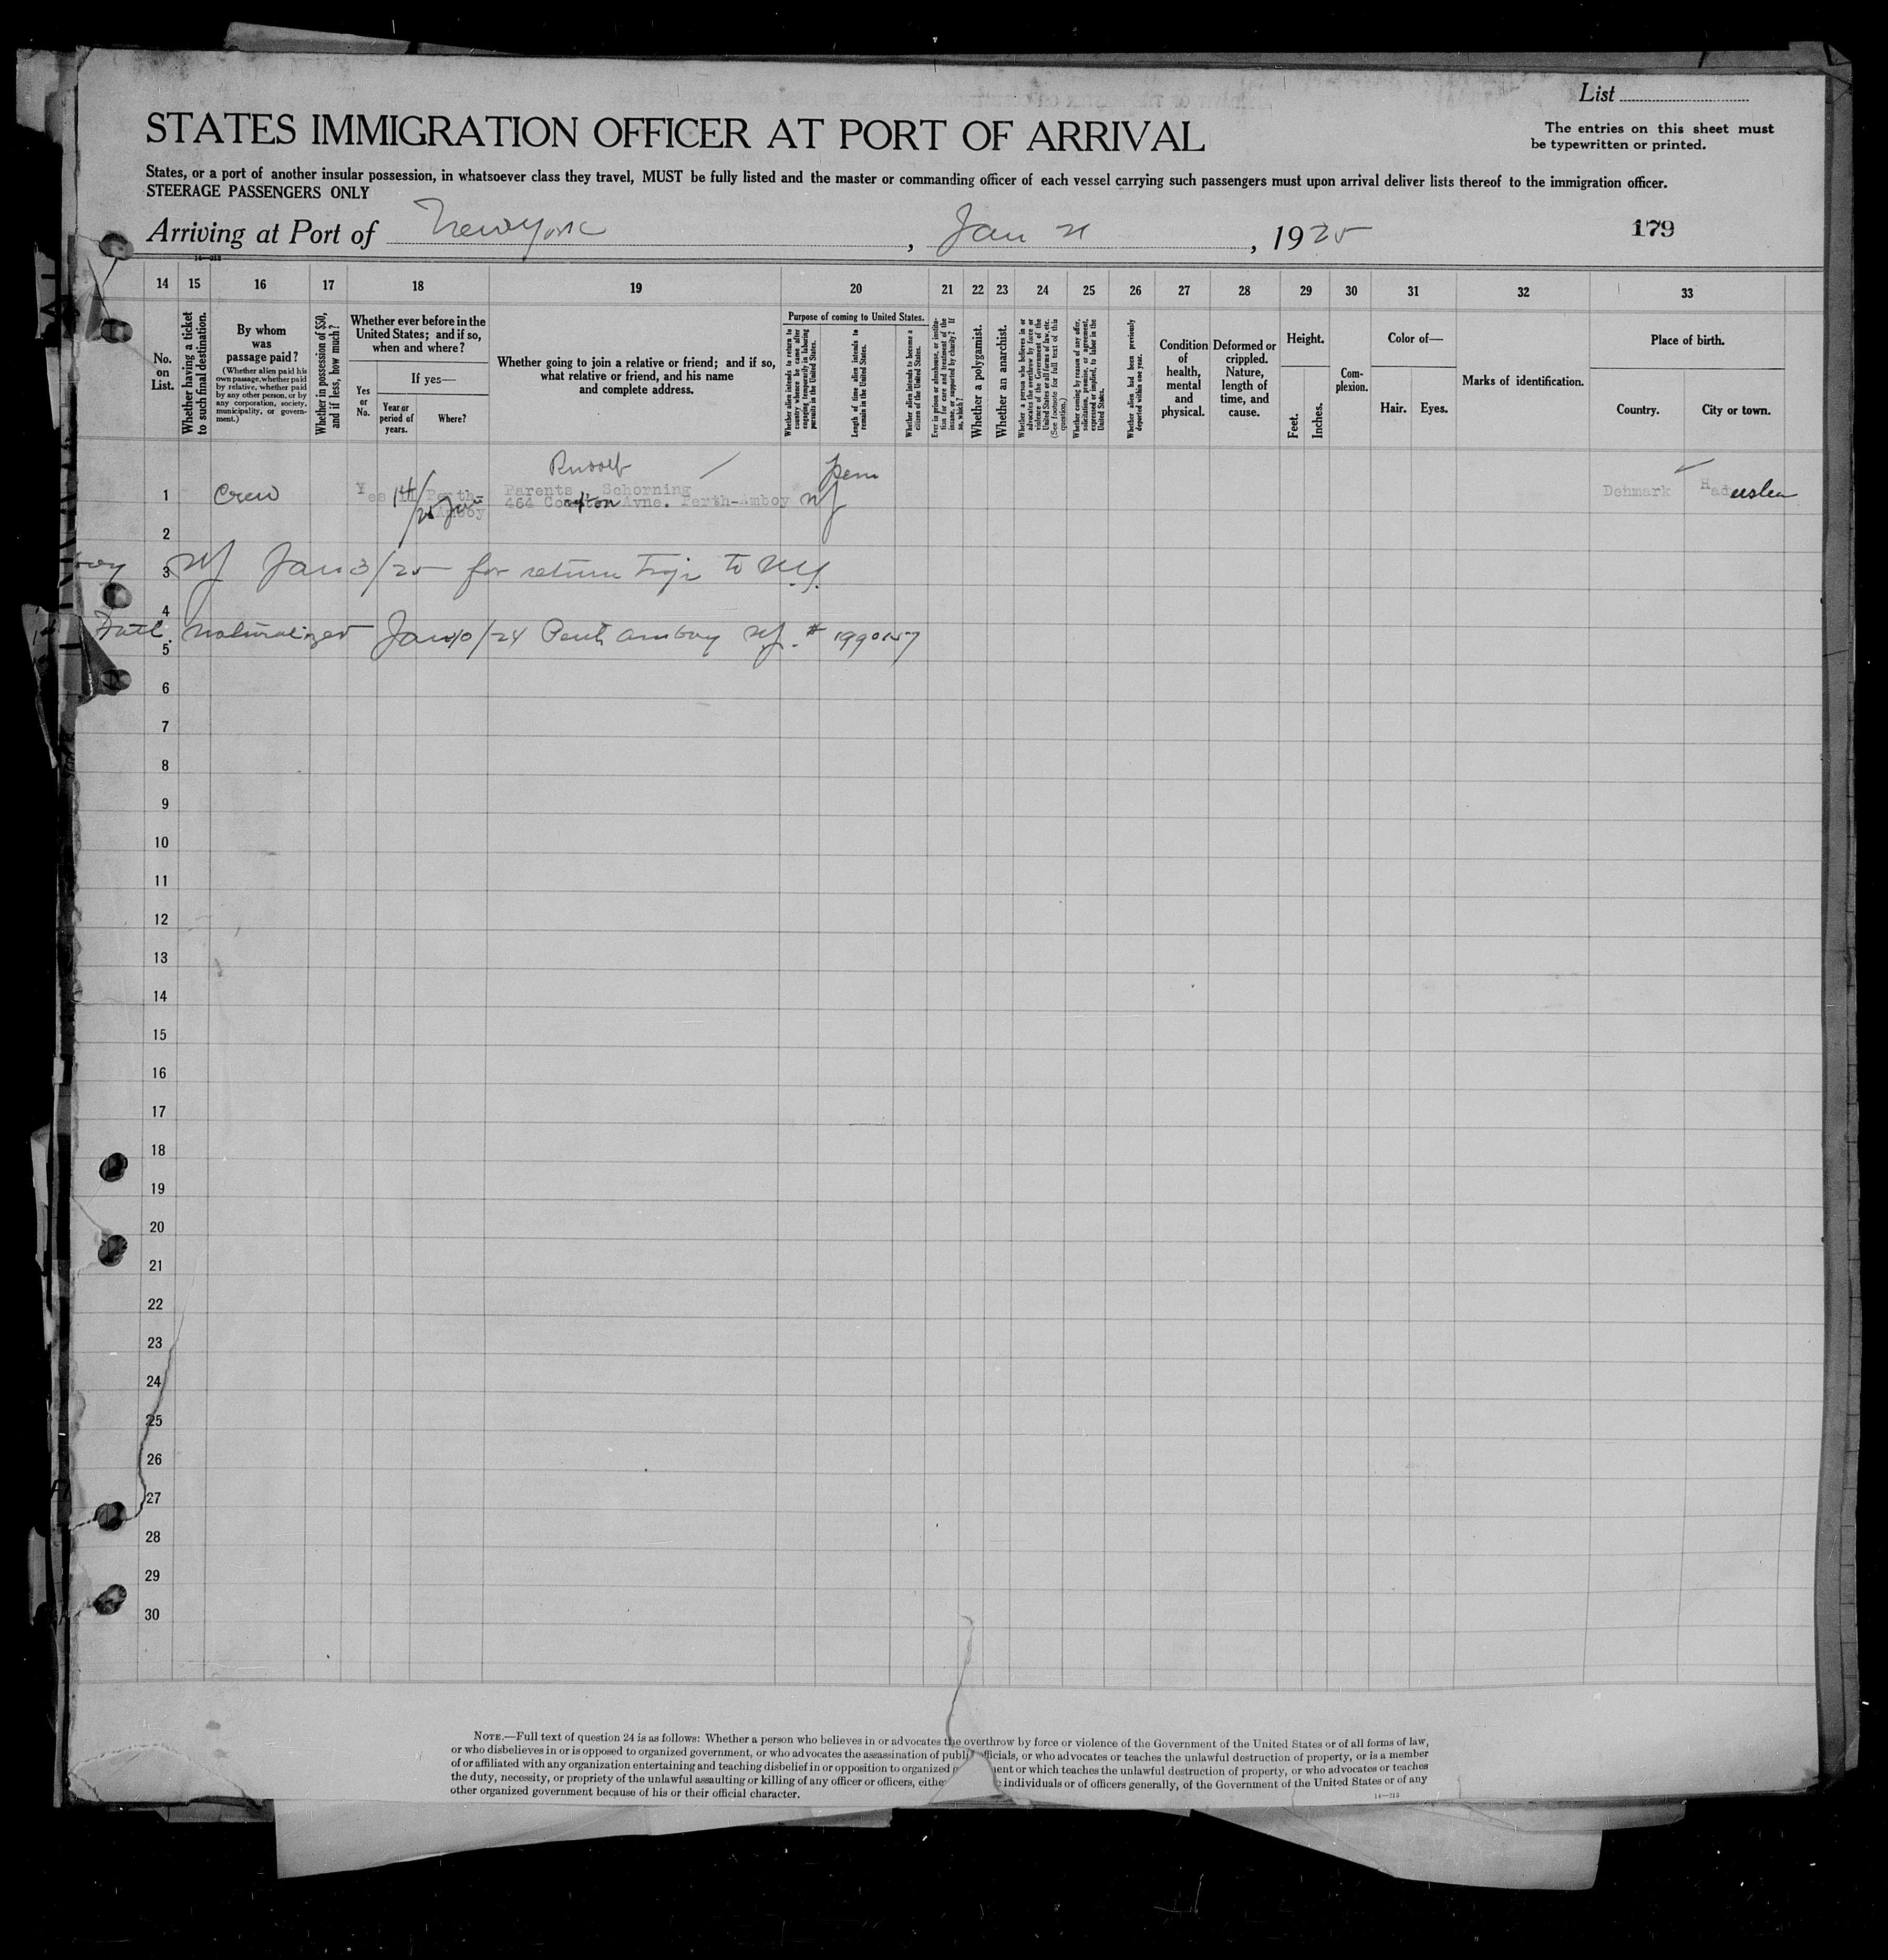 List
STATES IMMIGRATION OFFICER AT PORT OF ARRIVAL
The entries on this sheet must
be typewritten or printed.
States, or a port of another insular possession, in whatsoever class they travel, MUST be fully listed and the master or commanding officer of each vessel carrying such passengers must upon arrival deliver lists thereof to the immigration officer.
STEERAGE PASSENGERS ONLY
Arriving at Port of New York, Jan 21, 1925
179
14—213
14 15 16 17 18 19 20 21 22 23 24 25 26 27 28 29 30 31 32 33
No. on List.
Whether having a ticket to such final destination.
By whom was passage paid?
(Whether alien paid his own passage, whether paid by relative, whether paid by any other person, or by any corporation, society, municipality, or government.)
Whether in possession of $50, and if less, how much?
Whether ever before in the United States; and if so, when and where?
Yes or No.
If yes—
Year or period of years.
Where?
Whether going to join a relative or friend; and if so, what relative or friend, and his name and complete address.
Purpose of coming to United States.
Whether alien intends to return to country whence he came after engaging temporarily in laboring pursuits in the United States.
Length of time alien intends to remain in the United States.
Whether alien intends to become a citizen of the United States.
Ever in prison or almshouse, or institution for care and treatment of the insane, or supported by charity? If so, which?
Whether a polygamist.
Whether an anarchist.
Whether a person who believes in or advocates the overthrow by force or violence of the Government of the United States or all forms of law, etc. (See footnote for full text of this question.)
Whether coming by reason of any offer, solicitation, promise, or agreement, expressed or implied, to labor in the United States.
Whether alien had been previously deported within one year.
Condition of health, mental and physical.
Deformed or crippled. Nature, length of time, and cause.
Height.
Feet.
Inches.
Complexion.
Color of—
Hair.
Eyes.
Marks of identification.
Place of birth.
Country.
City or town.
Rudolf
perm
1 Crew Yes 14/25 Perth-Amboy Parents Schorning Denmark Hadersleu
464 Compton Avne. Perth-Amboy NJ
2
3 NJ Jan 3/25 for return trip to N.Y.
4
Fath. naturalized Jan 10/24 Perth Amboy NJ. # 1990157
5
6
7
8
9
10
11
12
13
14
15
16
17
18
19
20
21
22
23
24
25
26
27
28
29
30
NOTE.—Full text of question 24 is as follows: Whether a person who believes in or advocates the overthrow by force or violence of the Government of the United States or of all forms of law,
or who disbelieves in or is opposed to organized government, or who advocates the assassination of public officials, or who advocates or teaches the unlawful destruction of property, or is a member
of or affiliated with any organization entertaining and teaching disbelief in or opposition to organized ent or which teaches the unlawful destruction of property, or who advocates or teaches
the duty, necessity, or propriety of the unlawful assaulting or killing of any officer or officers, either individuals or of officers generally, of the Government of the United States or of any
other organized government because of his or their official character.
14—213